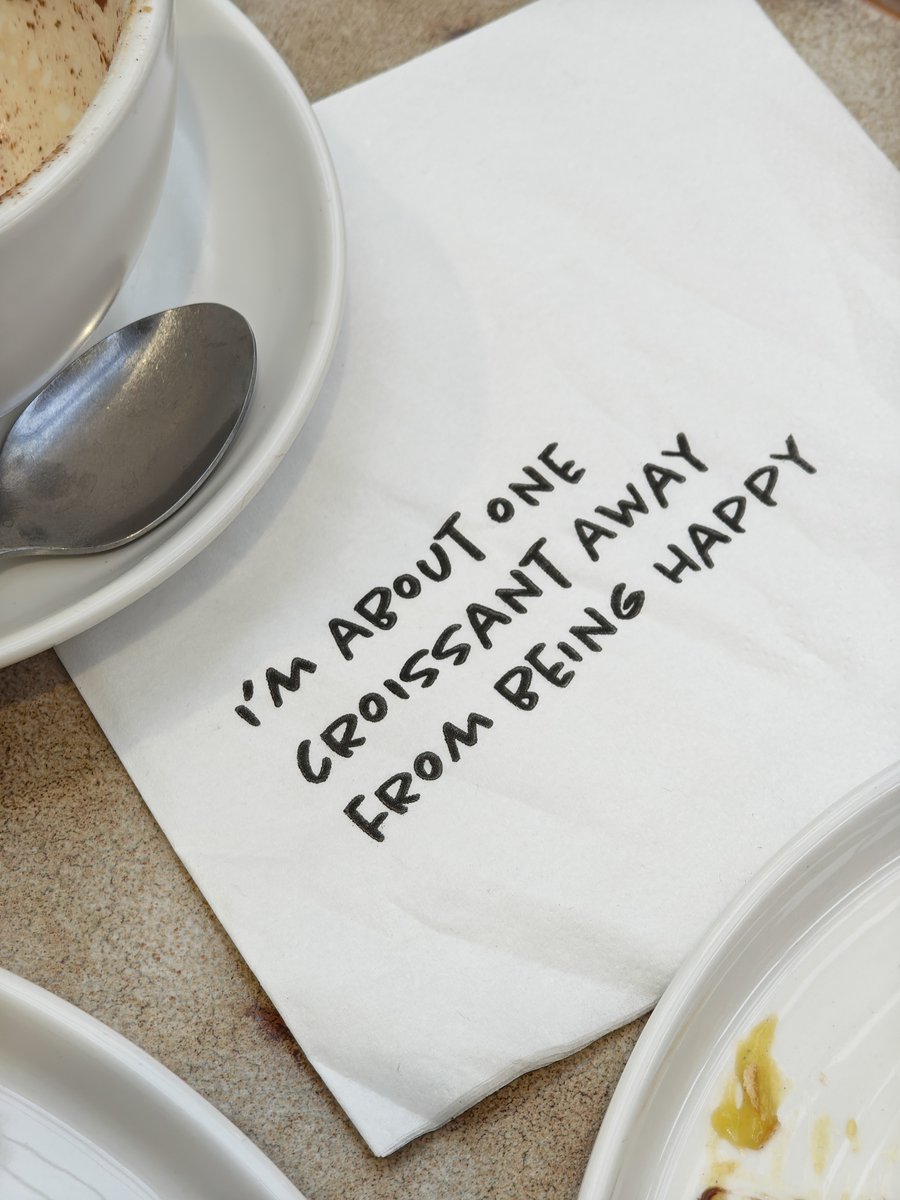 I'M ABOUT ONE
CROISSANT AWAY
FROM BEING HAPPY